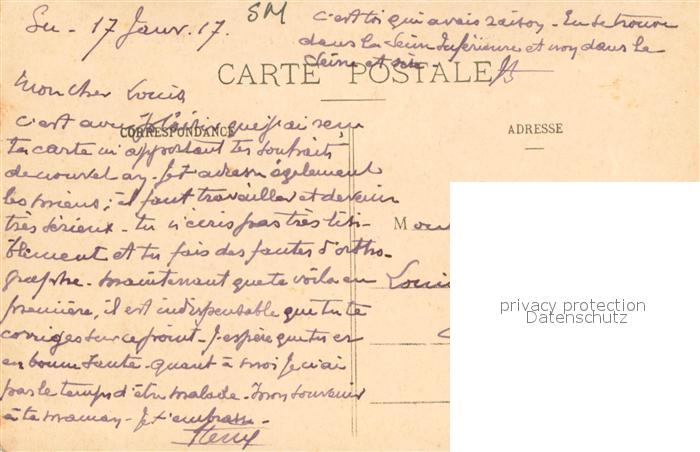 Eu - 17 Janv. 17.
SM
c'est toi qui avais raison - Eu se trouve
dans la Seine Inférieure et non dans la
Seine et Oise -
CARTE POSTALE
Mon cher Louis
CORRESPONDANCE
ADRESSE
c'est avec plaisir que j'ai reçu
ta carte m'apportant tes souhaits
de nouvel an. Je t'adresse également
les miens; il faut travailler et devenir
très sérieux - tu n'écris pas très lisi-
blement et tu fais des fautes d'ortho-
graphe. Maintenant que te voilà en
première, il est indispensable que tu te
corriges sur ce point - J'espère que tu es
en bonne santé - quant à moi je n'ai
pas le temps d'être malade. Mon souvenir
à ta maman - Je t'embrasse -
Louis
privacy protection
Datenschutz